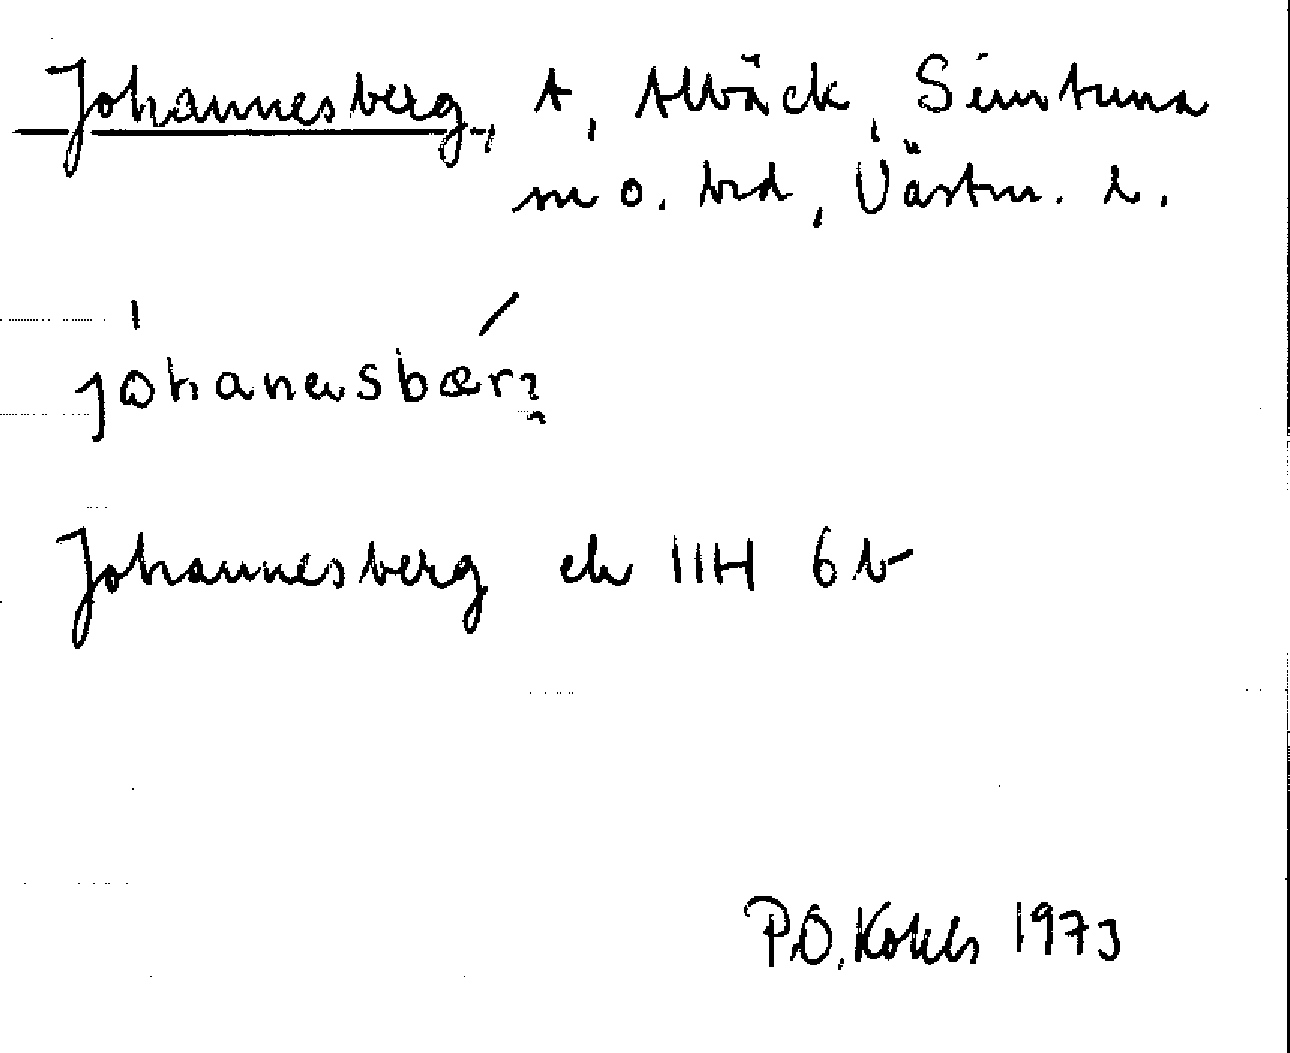 Johannesberg, t, Albäck, Simtuna
m o. hd, Västm. l.
johanɛsbærj
Johannesberg ek 11H 6b
P.O. 1973